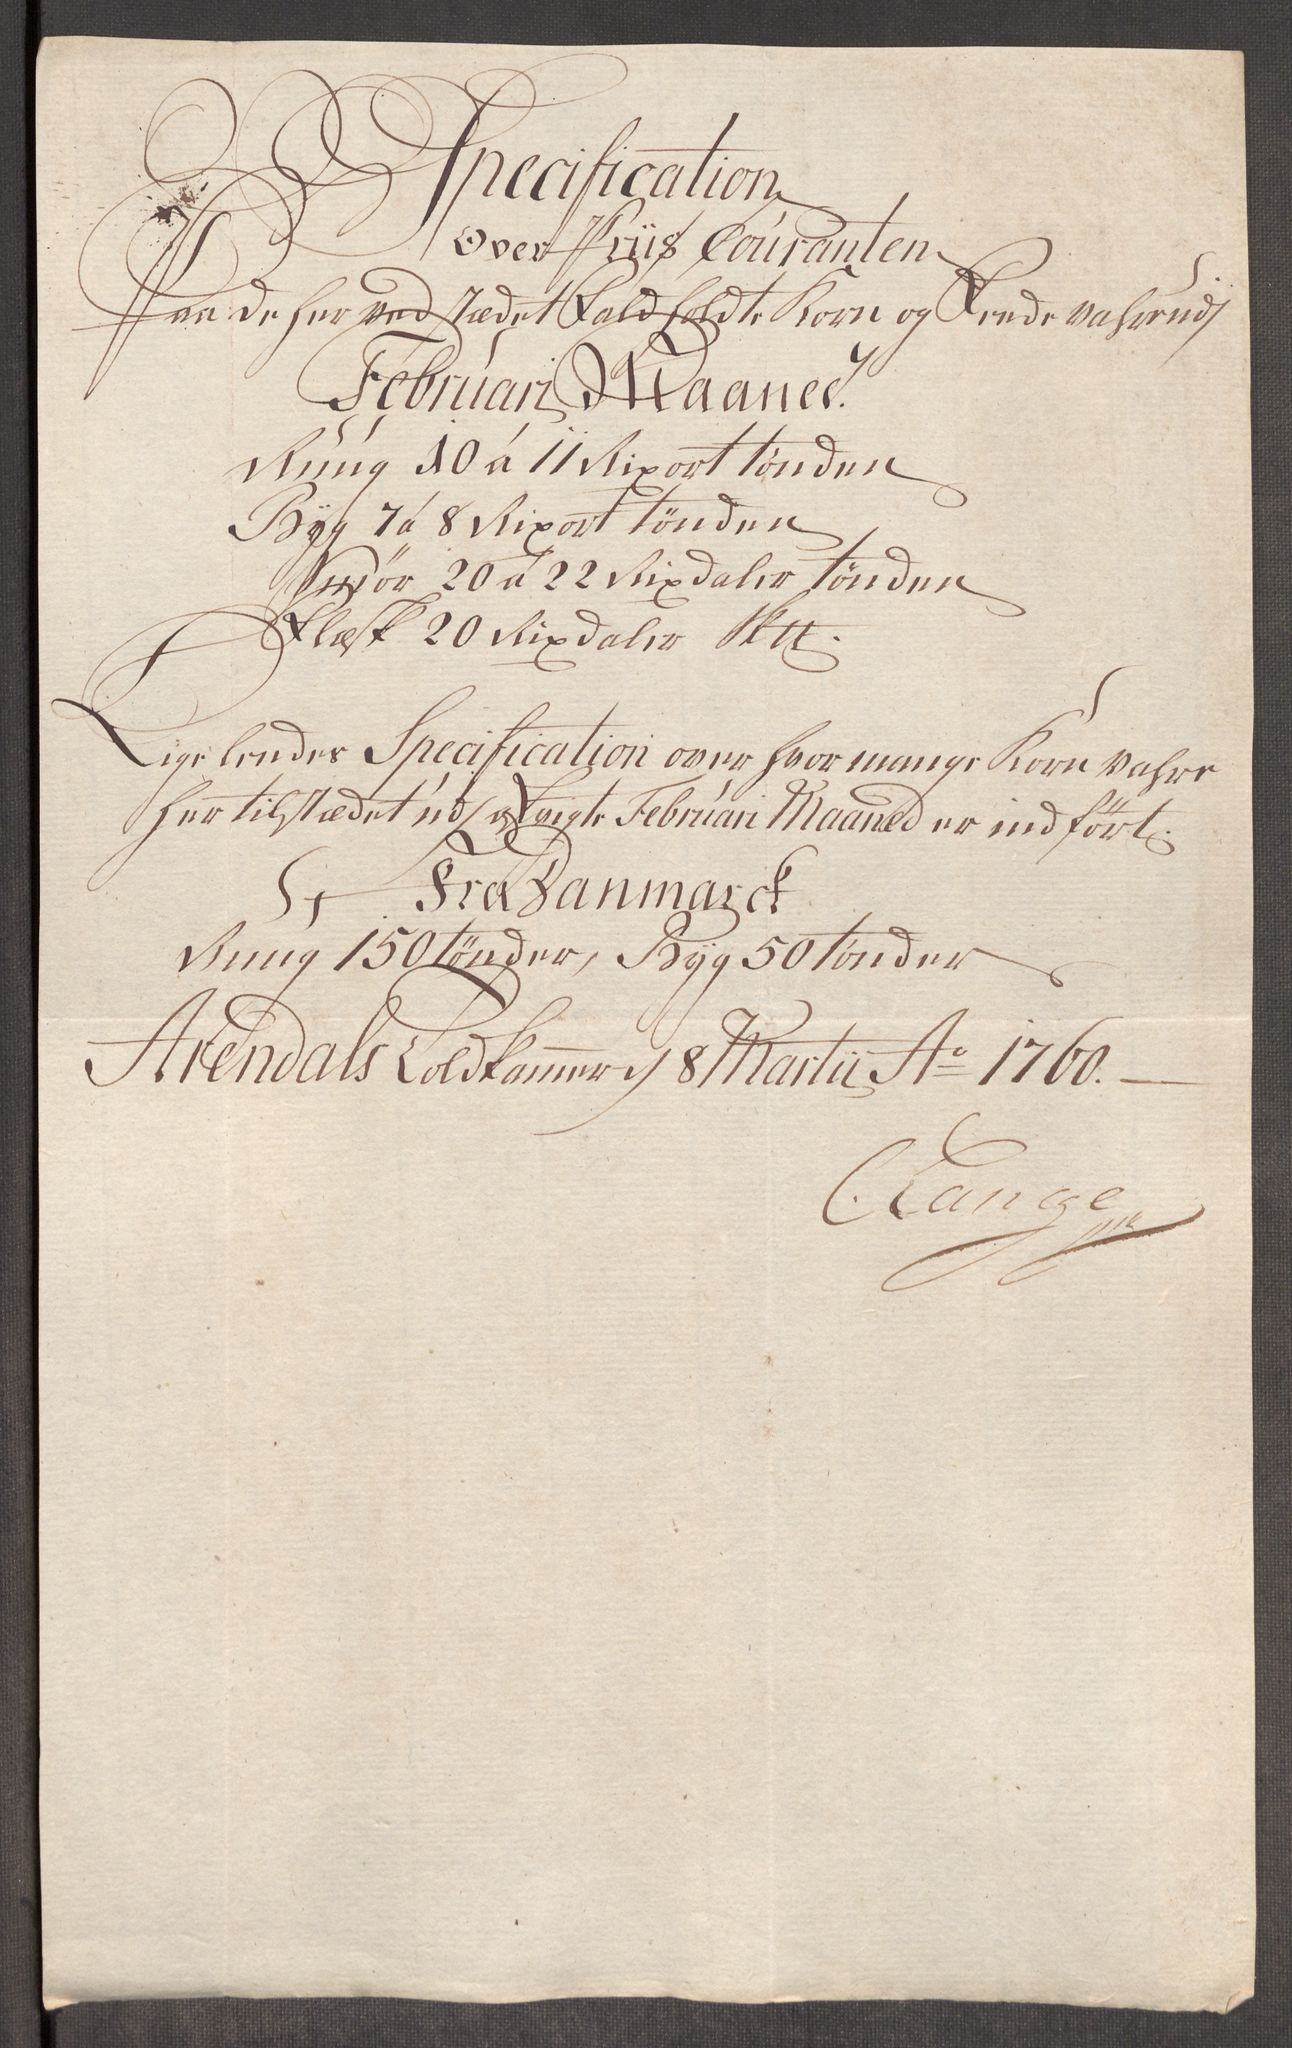 Specification
Over Priis Couranten
Paa de her ved stædet Fald holdte Korn og Fede vahre udj
Februari Maaned.
Rúúg 10 á 11 Rixort tønden
Byg 7 á 8 Rixort tønden
Smør 20 á 22 Rixdaler tønden
Flæsk 20 Rixdaler
Lige ledes Specification over hvor mange Korn vahre
her til stædet udj Februari Maaned er ind ført.
Fra Danmarck
Ruug 150 tønder, Byg 50 tønder
Arendals Toldkammer d 8 Martii Ao 1760.
C. Lange